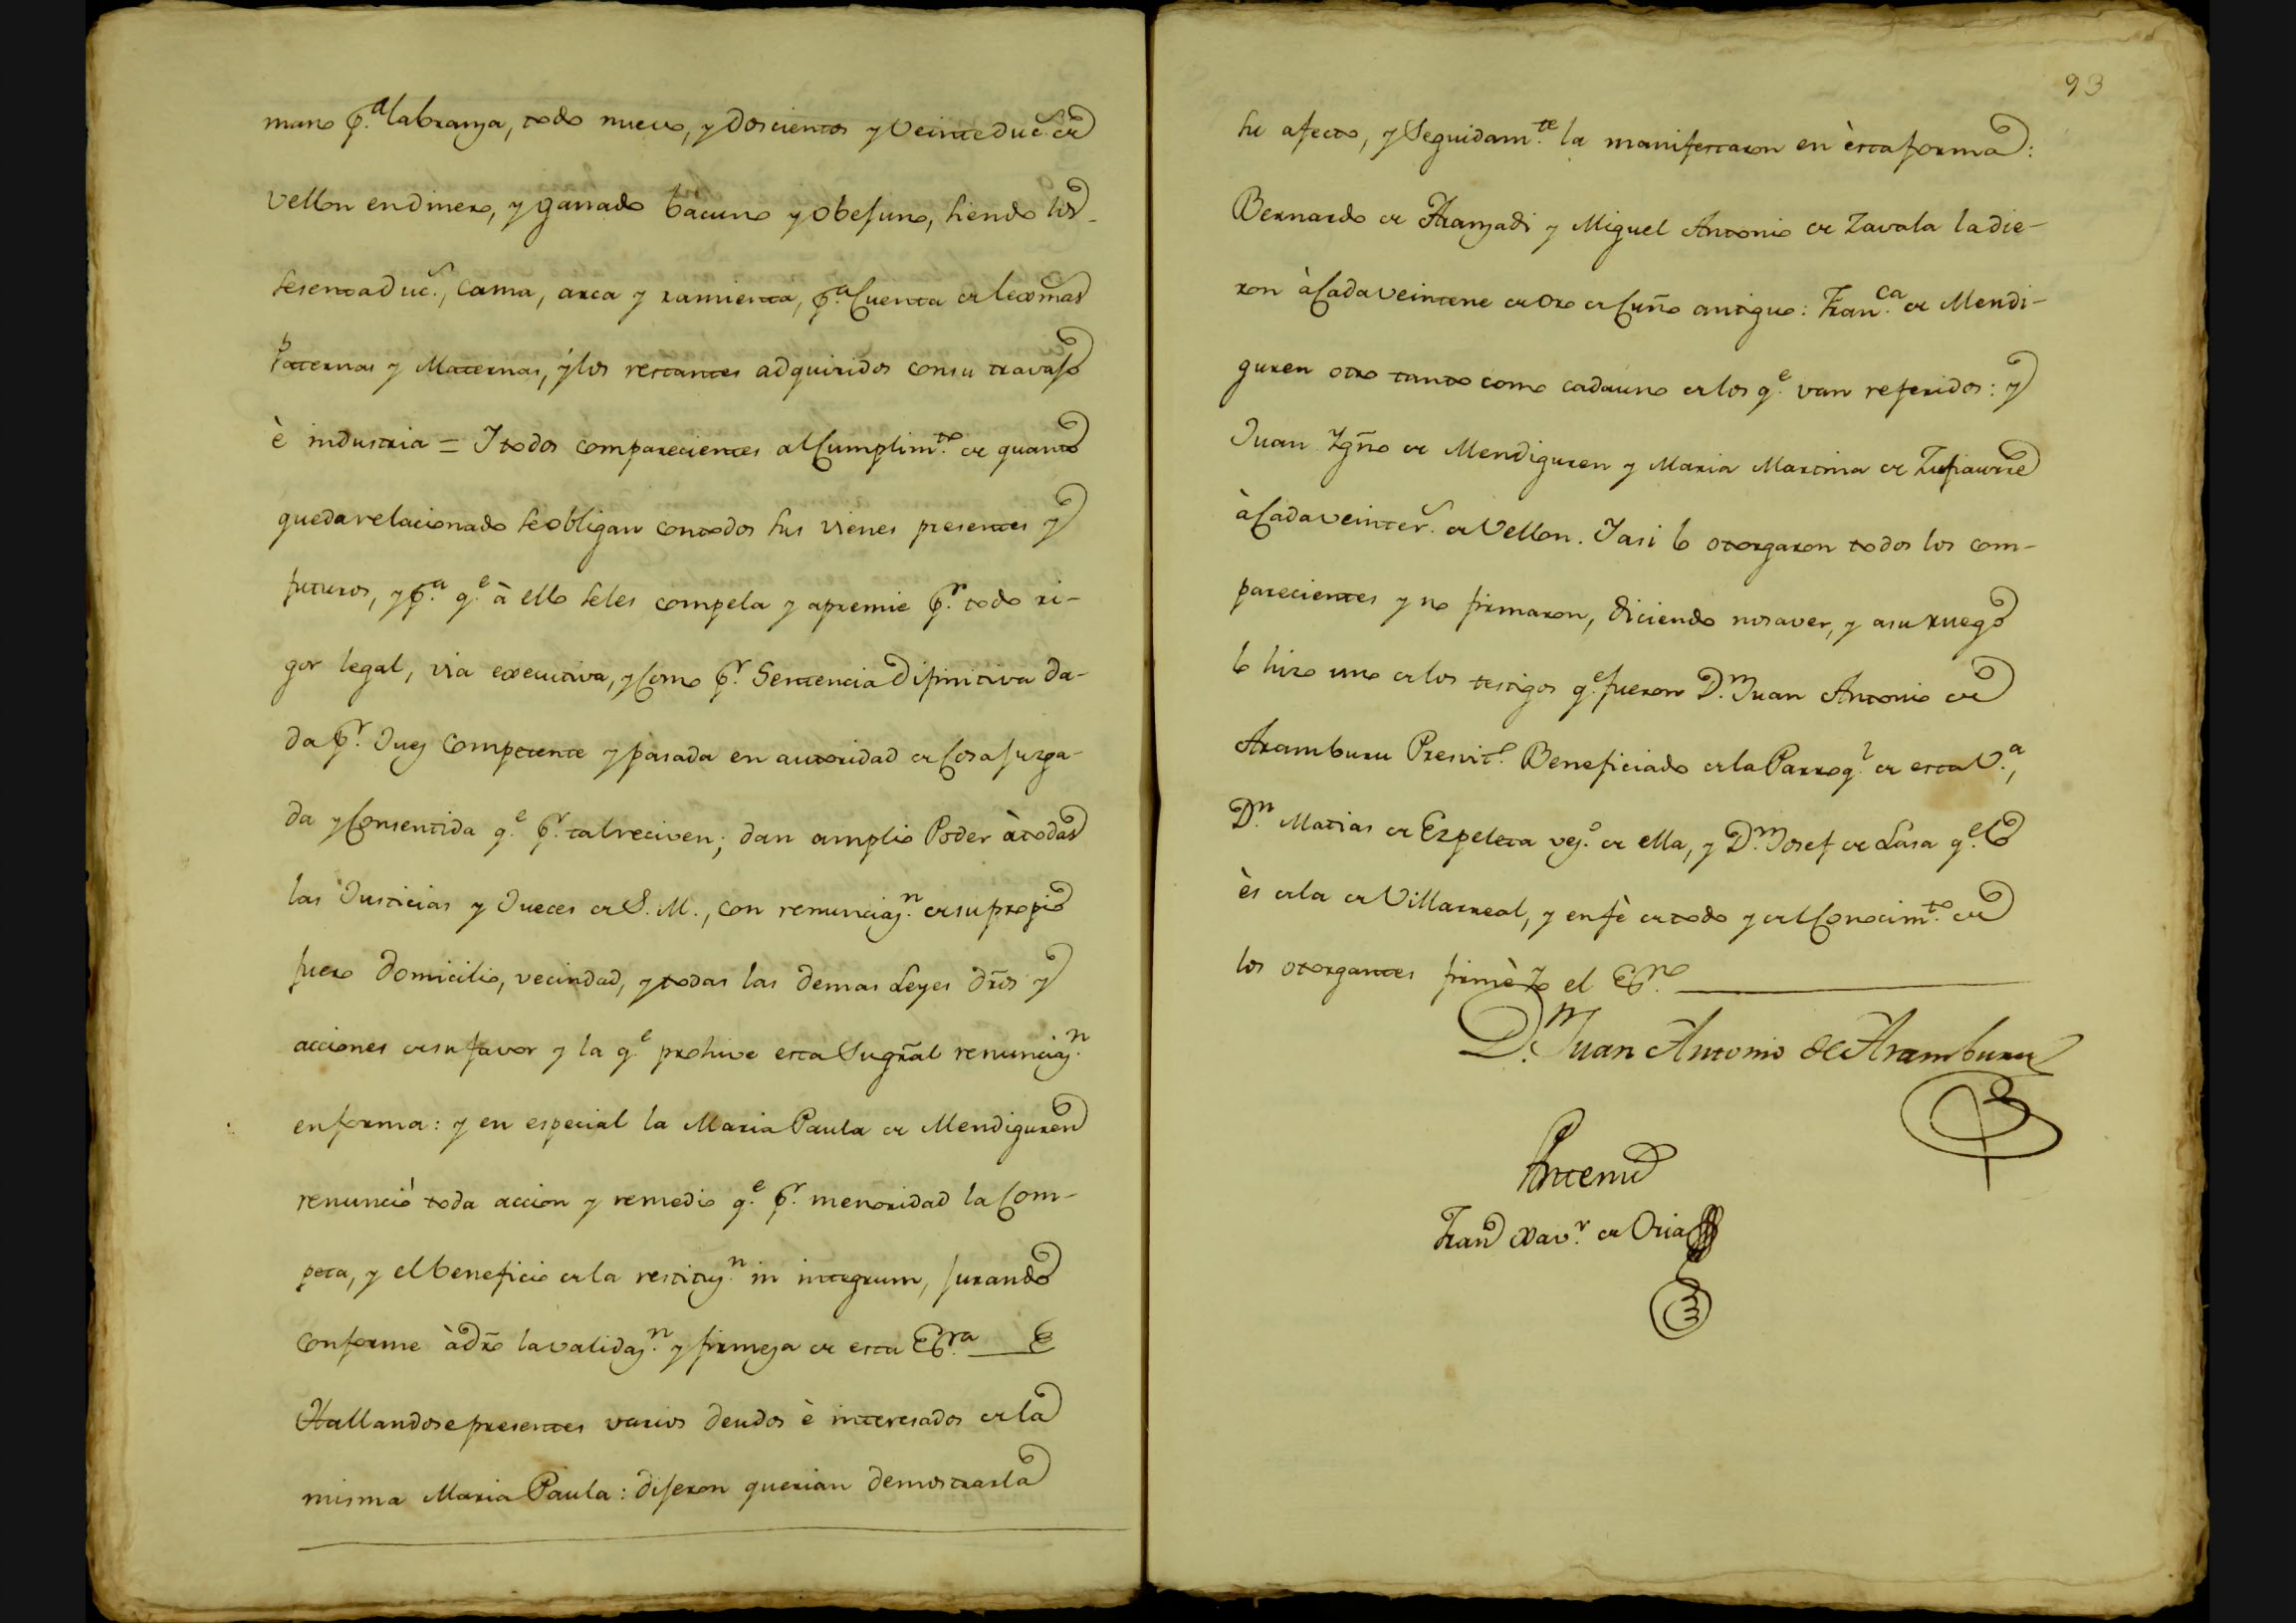 mano p.ª labranza, todo nuevo, y Doscientos y Veinte duc.s de
Vellon en dinero, y ganado bacuno y obejuno, siendo los
sesenta duc.s, cama, arca y ramienta, p.ª Cuenta de lexmas
Paternas y Maternas, y los restantes adquiridos con su travajo
è industria = I todos comparecientes al Cumplim.to de quanto
queda relacionado se obligan con todos sus vienes presentes y
futuros, y p.ª q.e à ello se les compela y apremie p.r todo ri-
gor legal, via executiva, y Como p.r Sentencia Difinitiva da-
da p.r Juez Competente y pasada en autoridad de Cosa juzga-
da y Consentida q.e p.r tal reciven; dan amplio Poder à todas
las Justicias y Jueces de S. M., con renunciaz.n de su propio
fuero Domicilio, vecindad, y todas las demas Leyes dr̃os y
acciones de su favor y la q.e prohive esta Su gr̃al renunciaz.n
en forma: y en especial la Maria Paula de Mendiguren
renunciò toda accion y remedio q.e p.r menoridad la Com-
peta, y el beneficio de la restituz.n in integrum, jurando
conforme à dr̃o la validaz.n y firmeza de esta Es.ra
Hallandose presentes varios deudos è interesados de la
misma Maria Paula: dijeron querian demostrarla
93
su afecto, y Seguidam.te la manifestaron en èsta forma:
Bernardo de Aranzadi y Miguel Antonio de Zavala la die-
ron à Cada veinteno de oro de Cuño antiguo: Fran.ca de Mendi-
guren otro tanto como cada uno de los q.e van referidos: y
Juan Ygñ̃o de Mendiguren y Maria Martina de Zufiaurre
à Cada veinte r.s de Vellon. I asi lo otorgaron todos los com-
parecientes y no firmaron, diciendo no saver, y a su ruego
lo hizo uno de los testigos q.e fueron D.n Juan Antonio de
Aramburu Presvit.o Beneficiado de la Parroq.l de esta V.ª,
D.n Matias de Ezpeleta vez.o de ella, y D.n Josef de Lasa q.e lo
ès de la de Villarreal, y en fè de todo y del Conocim.to de
los otorgantes firmè Yo el Es.no
D.n Juan Antonio de Aramburu
Antemi
Fran.co Xav.r de Oria